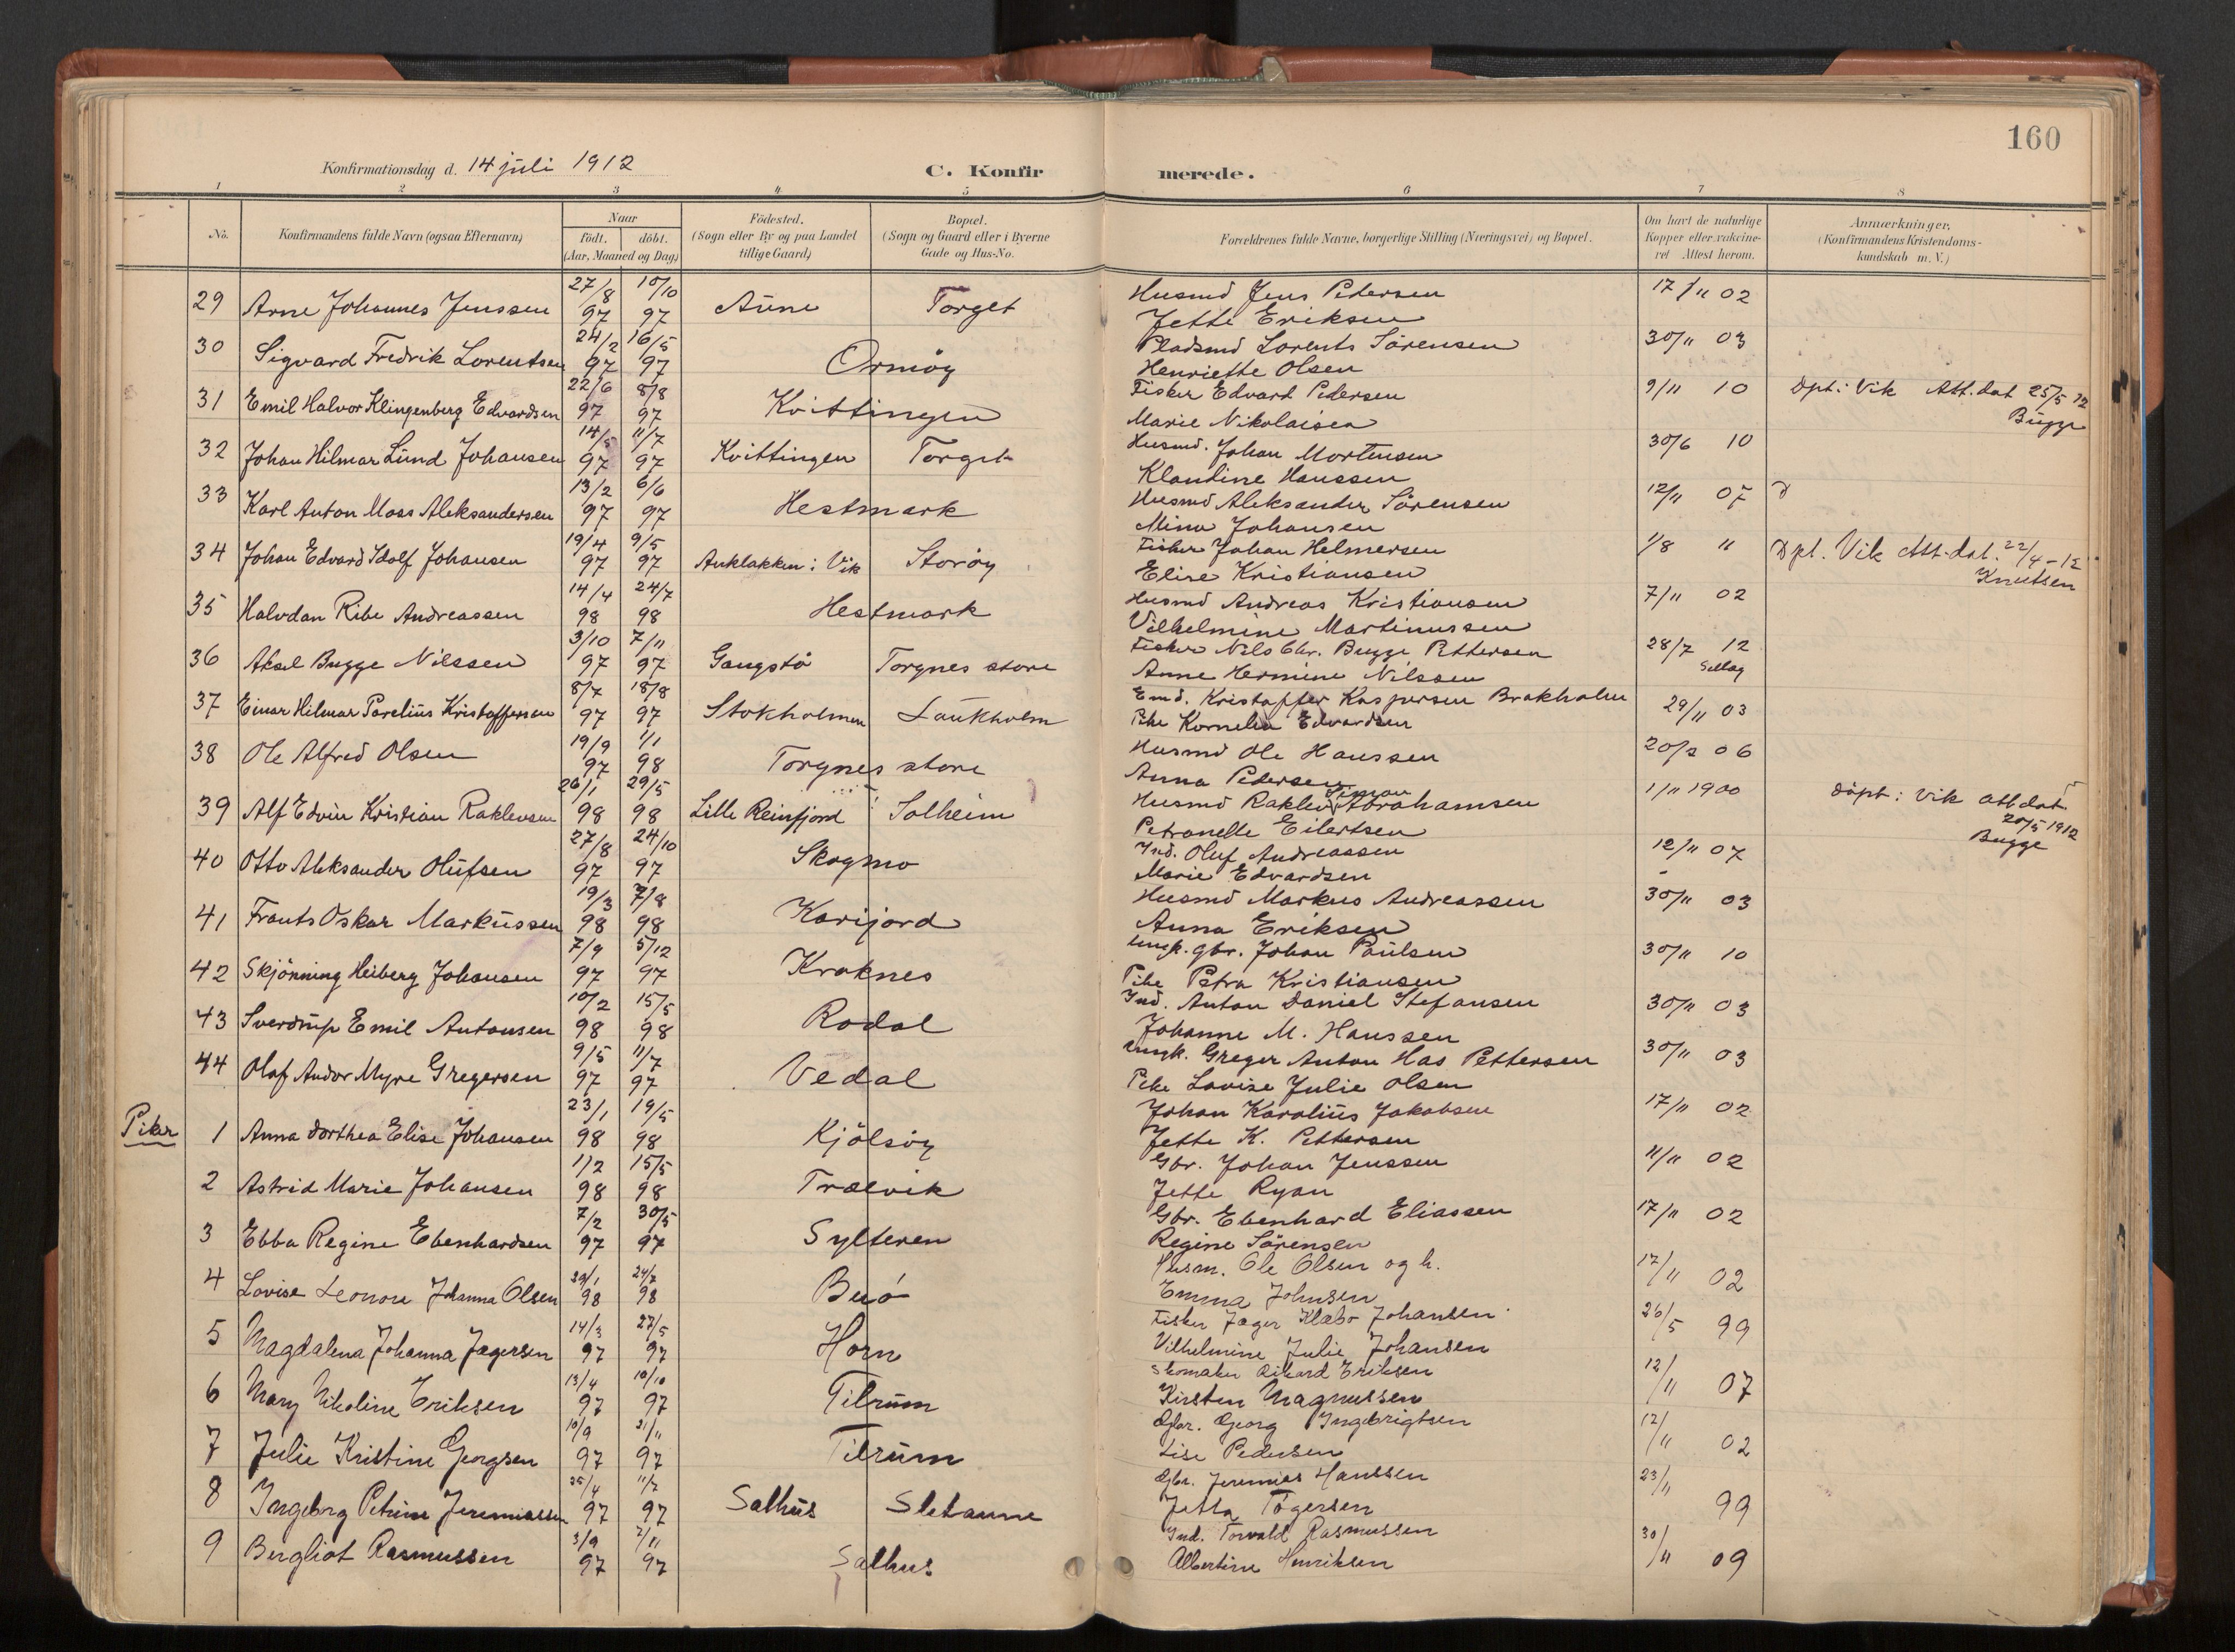 160
Konfirmationsdag d. 14 juli 1912 C. Konfirmerede.
1 2 3 4 5 6 7 8
No. Konfirmandens fulde Navn (ogsaa Efternavn) Naar födt. döbt. (Aar, Maaned og Dag) Födested. (Sogn eller By og paa Landet tillige Gaard) Bopæl. (Sogn og Gaard eller i Byerne Gade og Hus-No. Forældrenes fulde Navne, borgerlige Stilling (Næringsvei) og Bopæl. Om havt de naturlige Kopper eller vakcineret Attest herom. Anmærkninger. (Konfirmandens Kristendomskundskab m. V.)
29 Arne Johannes Jenssen 27/8 97 10/10 97 Aune Torget Husmd Jens Pedersen 17/11 02
Jette Eriksen
30 Sigvard Fredrik Lorentsen 24/2 97 16/5 97 Ormöy Pladsmd Lorents Sörensen 30/11 03
Henriette Olsen
31 Emil Halvor Klingenberg Edvardsen 22/6 97 8/8 97 Kvittingen Fisker Edvart Pedersen 9/11 10 Dpt. i Vik Att. dat 25/5 12
Marie Nikolaisen Bugge
32 Johan Hilmar Lund Johansen 14/5 97 11/7 97 Kvittingen Torget Husmd. Johan Mortensen 30/6 10
Klaudine Hanssen
33 Karl Anton Moss Aleksandersen 13/2 97 6/6 97 Hestmark Husmd Aleksander Sörensen 12/11 07 d
Mina Johansen
34 Johan Edvard Idolf Johansen 19/4 97 9/5 97 Auklakken i Vik Storöy Fisker Johan Helmersen 1/8 " Dpt. Vik Att. dat. 22/4 - 12
Elise Kristiansen Knutsen
35 Halvdan Ribe Andreassen 14/4 98 24/7 98 Hestmark Husmd Andreas Kristiansen 7/11 02
Vilhelmine Martinussen
36 Aksel Bugge Nilssen 3/10 97 7/11 97 Gangstö Torgnes store Fisker Nils Chr. Bugge Pettersen 28/7 12
Anne Hermine Nilssen
37 Einar Hilmar Parelius Kristoffersen 8/7 97 18/8 97 Stokholmen Laukholm Emd. Kristoffer Kaspersen Brakholm 29/11 03
Pike Kornelia Edvardsen
38 Ole Alfred Olsen 19/9 97 1/1 98 Torgnes store Husmd Ole Hanssen 20/2 06
Anna Pedersen
39 Alf Edvin Kristian Raklevsen 26/1 98 29/5 98 Lille Reinfjord Solheim Husmd Raklev Simon Abrahamsen 1/11 1900 döpt i Vik att dat.
Petronelle Eilertsen 20/5 1912
Bugge
40 Otto Aleksander Olufsen 27/8 97 24/10 97 Skogmo Ind. Oluf Andreassen 12/11 07
Marie Edvardsen
41 Frants Oskar Markussen 19/3 98 7/8 98 Karijord Husmd Markus Andreassen 30/11 03
Anna Eriksen
42 Skjönning Heiberg Johansen 7/9 97 5/12 97 Kraknes Ungk. gbr. Johan Paulsen 30/11 10
Pike Petra Kristiansen
43 Sverdrup Emil Antonsen 10/2 98 15/5 98 Rodal Ind. Anton Daniel Stefansen 30/11 03
Johanne M. Hanssen
44 Olaf Andor Myre Gregersen 9/5 97 11/7 97 Vedal Ungk. Greger Anton Has Pettersen 30/11 03
Pike Lovise Julie Olsen
Piker 1 Anna Dorthea Elise Johansen 23/1 98 19/5 98 Kjölsöy Johan Karolius Jakobsen 17/11 02
Jette K. Pettersen
2 Astrid Marie Johansen 1/2 98 15/5 98 Trælvik Gbr. Johan Jenssen 11/11 02
Jette Ryan
3 Ebba Regine Ebenhardsen 7/2 97 30/5 97 Sylteren Gbr. Ebenhard Eliassen 17/11 02
Regine Sörensen
4 Lovise Leonore Johanna Olsen 29/1 98 24/7 98 Buö Husm. Ole Olsen og h. 17/11 02
Emma Johnsen
5 Magdalena Johanna Jagersen 14/3 97 27/5 97 Horn Fisker Jager Klæbo Johansen 26/5 99
Vilhelmine Julie Johansen
6 Mary Nikoline Eriksen 13/4 97 10/10 97 Tilrum Skomaker Rikard Eriksen 12/11 07
Kirsten Magnussen
7 Julie Kristine Georgsen 10/9 97 21/11 97 Tilrum Gbr. Georg Ingebrigtsen 12/11 02
Lise Pedersen
8 Ingeborg Petrine Jeremiassen 25/4 97 11/7 97 Salhus Sletaune Gbr. Jeremias Hanssen 23/11 99
Jetta Togersen
9 Bergliot Rasmussen 3/9 97 7/11 97 Salhus Ind. Torvald Rasmussen 30/11 09
Albertine Hinriksen